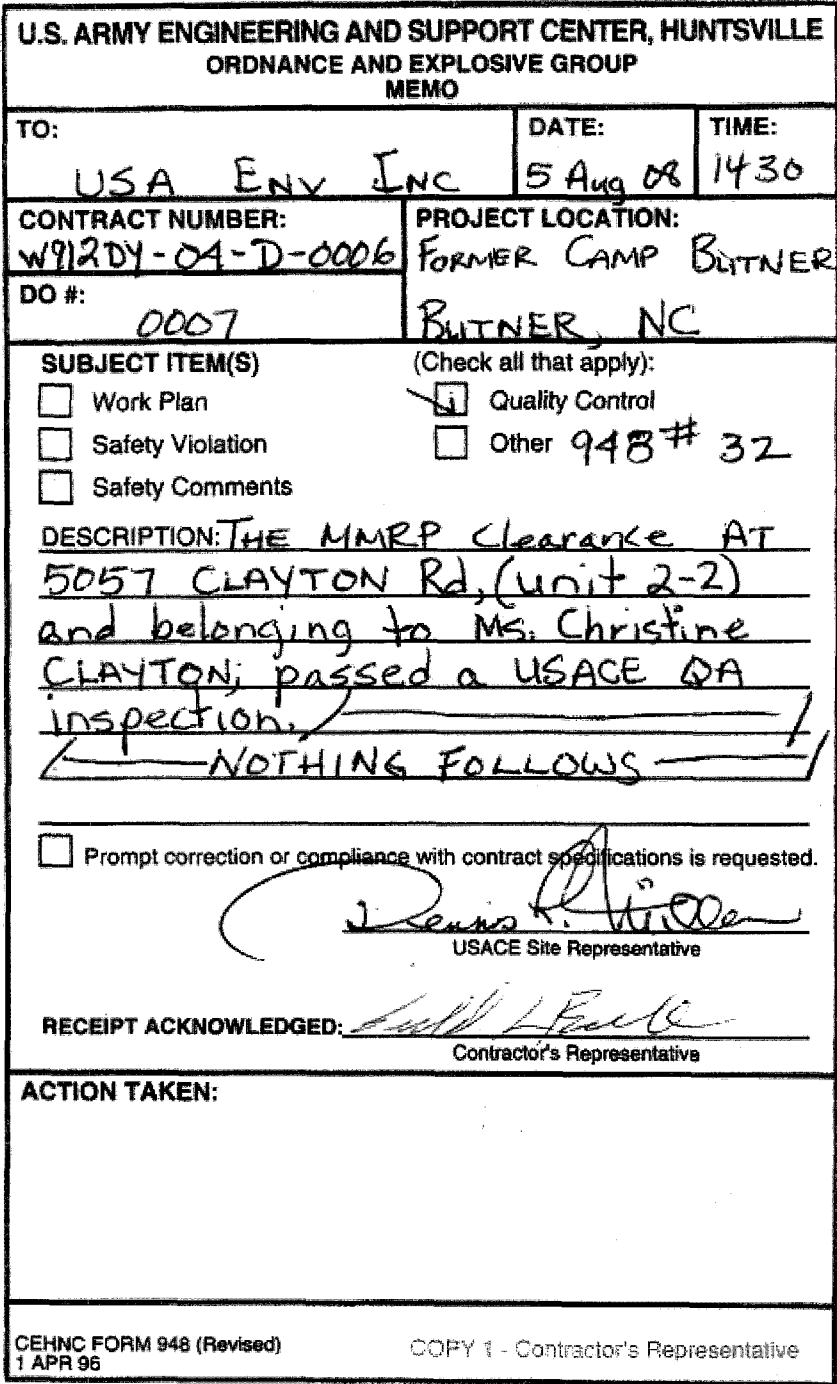 U.S. ARMY ENGINEERING AND SUPPORT CENTER, HUNTSVILLE
ORDNANCE AND EXPLOSIVE GROUP
MEMO
TO:
USA ENV INC
DATE:
5 Aug 08
TIME:
1430
CONTRACT NUMBER:
W912DY-04-D-0006
PROJECT LOCATION:
FORMER CAMP BUTNER
BUTNER, NC
DO #:
0007
SUBJECT ITEM(S)
(Check all that apply):
Work Plan
Quality Control
Safety Violation
Other 948# 32
Safety Comments
DESCRIPTION: THE MMRP Clearance AT
5057 CLAYTON Rd, (unit 2-2)
and belonging to Ms. Christine
CLAYTON; passed a USACE QA
inspection.
NOTHING FOLLOWS
Prompt correction or compliance with contract specifications is requested.
Dennis
USACE Site Representative
RECEIPT ACKNOWLEDGED:
Contractor's Representative
ACTION TAKEN:
CEHNC FORM 948 (Revised)
1 APR 96
COPY 1 - Contractor's Representative